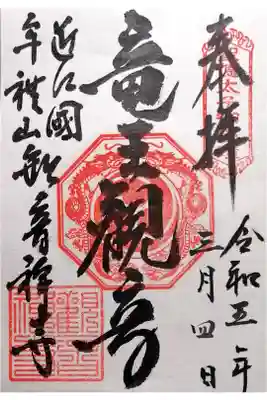 奉拝
令和五年
三月四日
竜王觀音
近江國
牟禮山観音禅寺